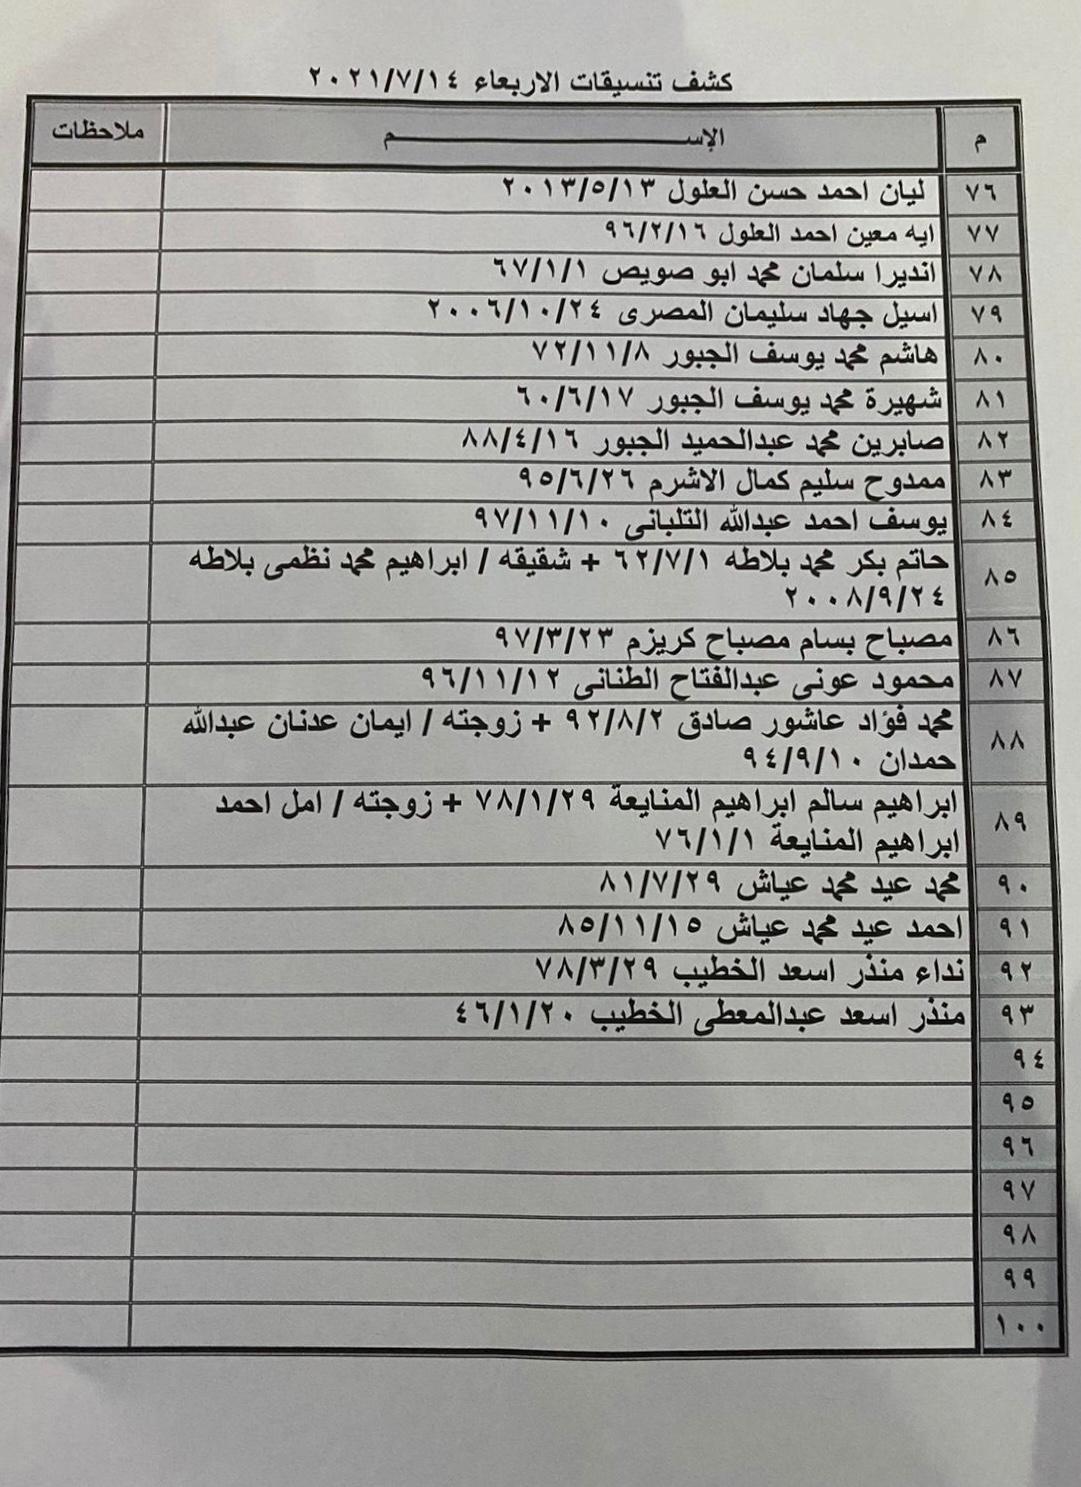 كشف تنسيقات الاربعاء ٢٠٢١/٧/١٤
م الإســـــــــــــم ملاحظات
٧٦ ليان احمد حسن العلول ٢٠١٣/٥/١٣
٧٧ ايه معين احمد العلول ٩٦/٢/١٦
٧٨ انديرا سلمان محمد ابو صويص ٦٧/١/١
٧٩ اسيل جهاد سليمان المصرى ٢٠٠٦/١٠/٢٤
٨٠ هاشم محمد يوسف الجبور ٧٢/١١/٨
٨١ شهيرة محمد يوسف الجبور ٦٠/٦/١٧
٨٢ صابرين محمد عبدالحميد الجبور ٨٨/٤/١٦
٨٣ ممدوح سليم كمال الاشرم ٩٥/٦/٢٦
٨٤ يوسف احمد عبدالله التلبانى ٩٧/١١/١٠
٨٥ حاتم بكر محمد بلاطه ٦٢/٧/١ + شقيقه / ابراهيم محمد نظمى بلاطه
٢٠٠٨/٩/٢٤
٨٦ مصباح بسام مصباح كريزم ٩٧/٣/٢٣
٨٧ محمود عونى عبدالفتاح الطنانى ٩٦/١١/١٢
٨٨ محمد فؤاد عاشور صادق ٩٢/٨/٢ + زوجته / ايمان عدنان عبدالله
حمدان ٩٤/٩/١٠
٨٩ ابراهيم سالم ابراهيم المنايعة ٧٨/١/٢٩ + زوجته / امل احمد
ابراهيم المنايعة ٧٦/١/١
٩٠ محمد عيد محمد عياش ٨١/٧/٢٩
٩١ احمد عيد محمد عياش ٨٥/١١/١٥
٩٢ نداء منذر اسعد الخطيب ٧٨/٣/٢٩
٩٣ منذر اسعد عبدالمعطى الخطيب ٤٦/١/٢٠
٩٤
٩٥
٩٦
٩٧
٩٨
٩٩
١٠٠